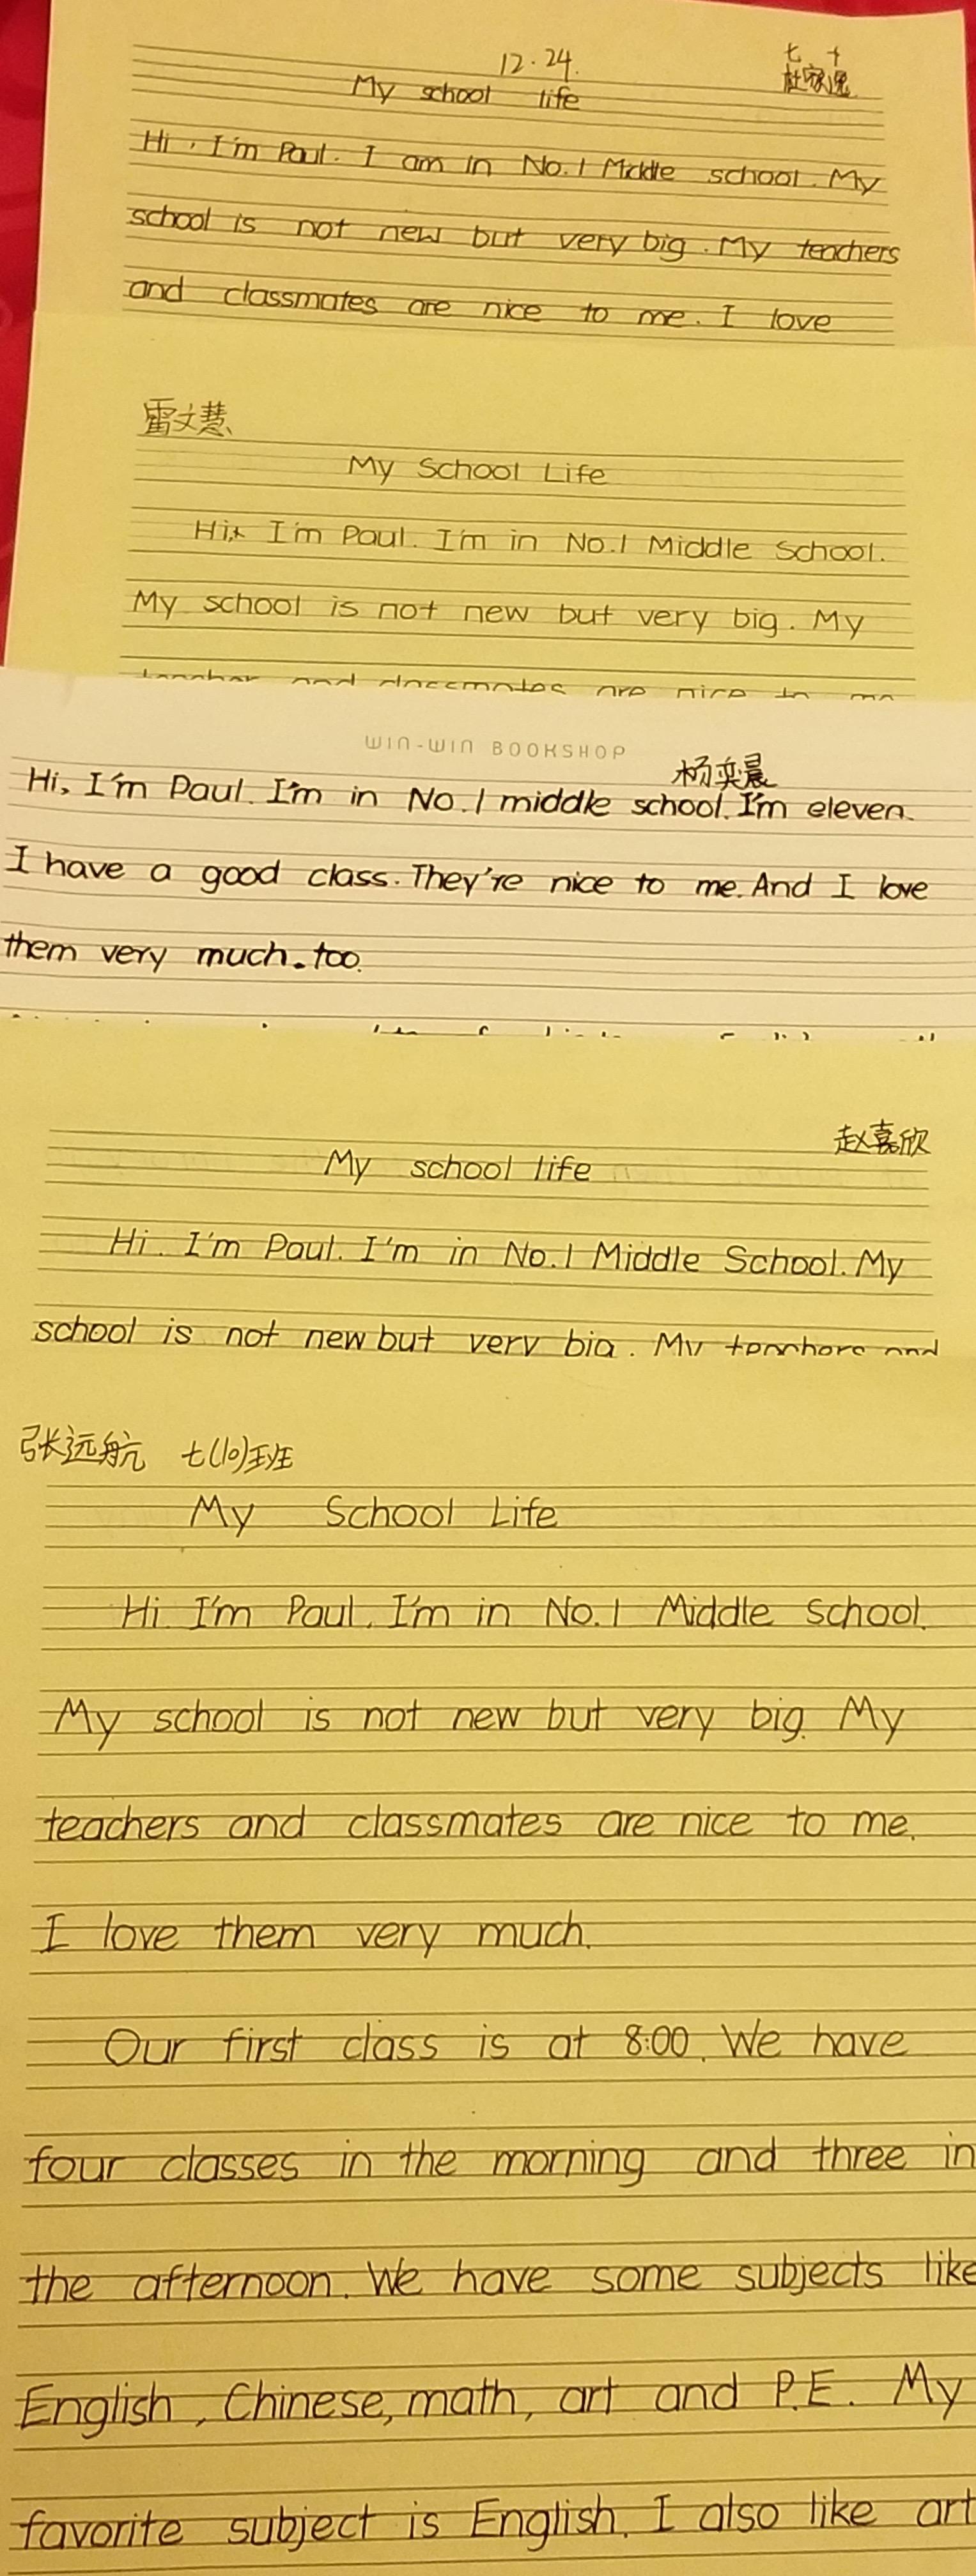 12.24.
七 十
My school life
杜家
Hi, I'm Paul. I am in No.1 Middle school. My
school is not new but very big. My teachers
and classmates are nice to me. I love
雷文慧
My School Life
Hi, I'm Paul. I'm in No.1 Middle School.
My school is not new but very big. My
teacher and classmates are nice to me
WIN-WIN BOOKSHOP
杨奕晨
Hi, I'm Paul. I'm in No.1 middle school. I'm eleven.
I have a good class. They're nice to me. And I love
them very much.too.
赵嘉欣
My school life
Hi. I'm Paul. I'm in No.1 Middle School. My
school is not new but very big. My teachers and
张远航 七(10)班
My School Life
Hi. I'm Paul. I'm in No.1 Middle School.
My school is not new but very big. My
teachers and classmates are nice to me.
I love them very much.
Our first class is at 8:00. We have
four classes in the morning and three in
the afternoon. We have some subjects like
English, Chinese, math, art and P.E. My
favorite subject is English. I also like art